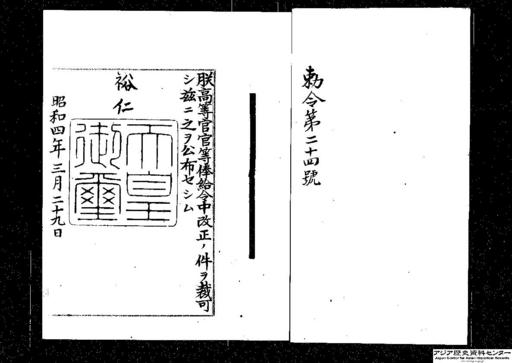 勅令第二十四號
朕高等官官等俸給令中改正ノ件ヲ裁可
シ茲ニ之ヲ公布セシム
裕仁
天皇
御璽
昭和四年三月二十九日
アジア歴史資料センター
Japan Center for Asian Historical Records